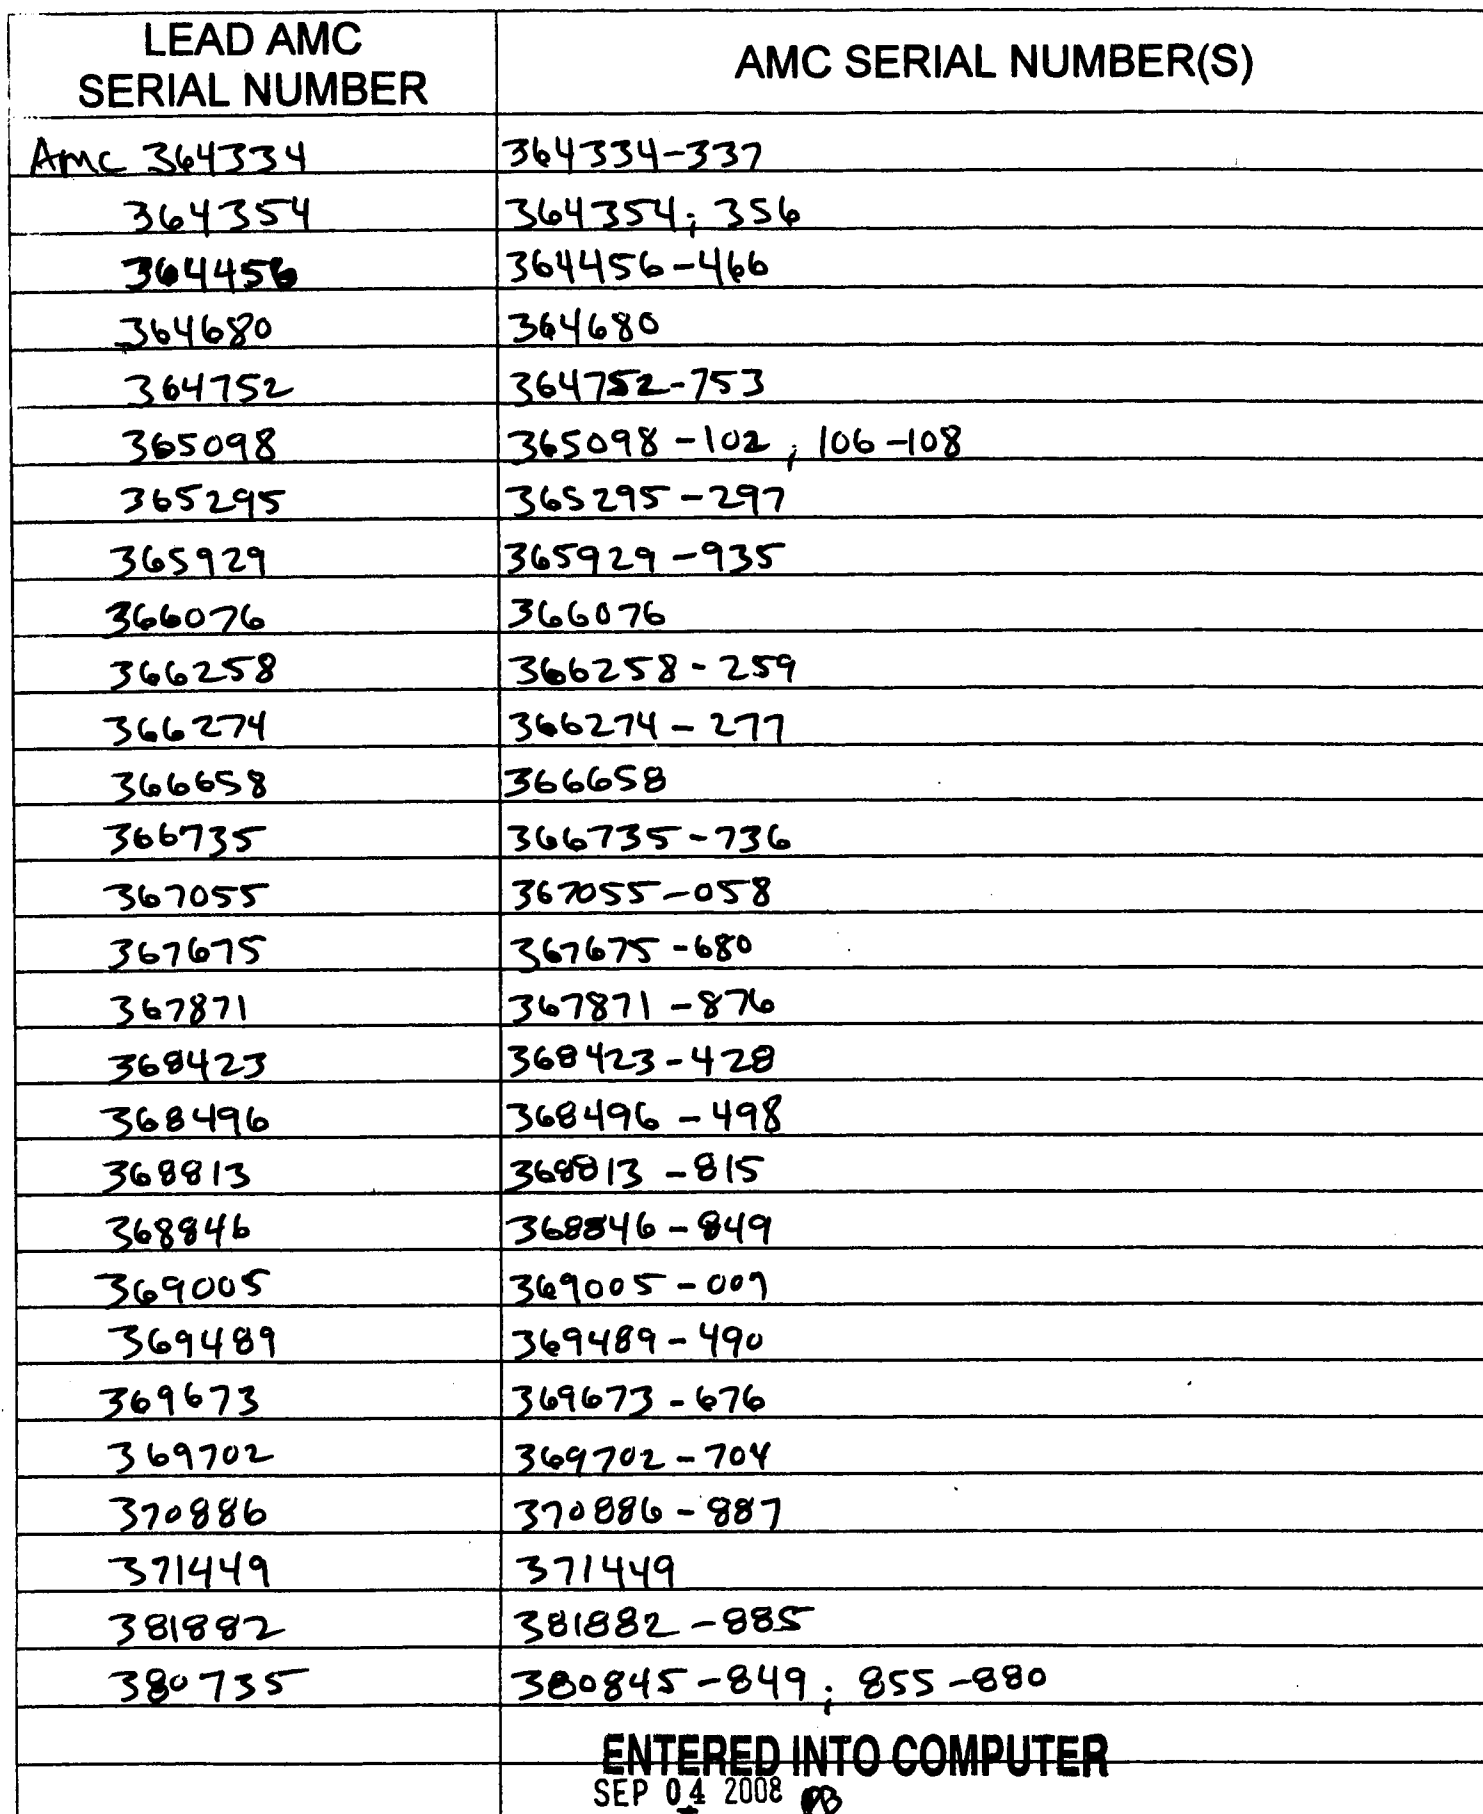 LEAD AMC
SERIAL NUMBER
AMC SERIAL NUMBER(S)
Amc 364334 364334-337
364354 364354; 356
364456 364456-466
364680 364680
364752 364752-753
365098 365098-102; 106-108
365295 365295-297
365929 365929-935
366076 366076
366258 366258-259
366274 366274-277
366658 366658
366735 366735-736
367055 367055-058
367675 367675-680
367871 367871-876
368423 368423-428
368496 368496-498
368813 368813-815
368846 368846-849
369005 369005-007
369489 369489-490
369673 369673-676
369702 369702-704
370886 370886-887
371449 371449
381882 381882-885
380735 380845-849; 855-880
ENTERED INTO COMPUTER
SEP 04 2008